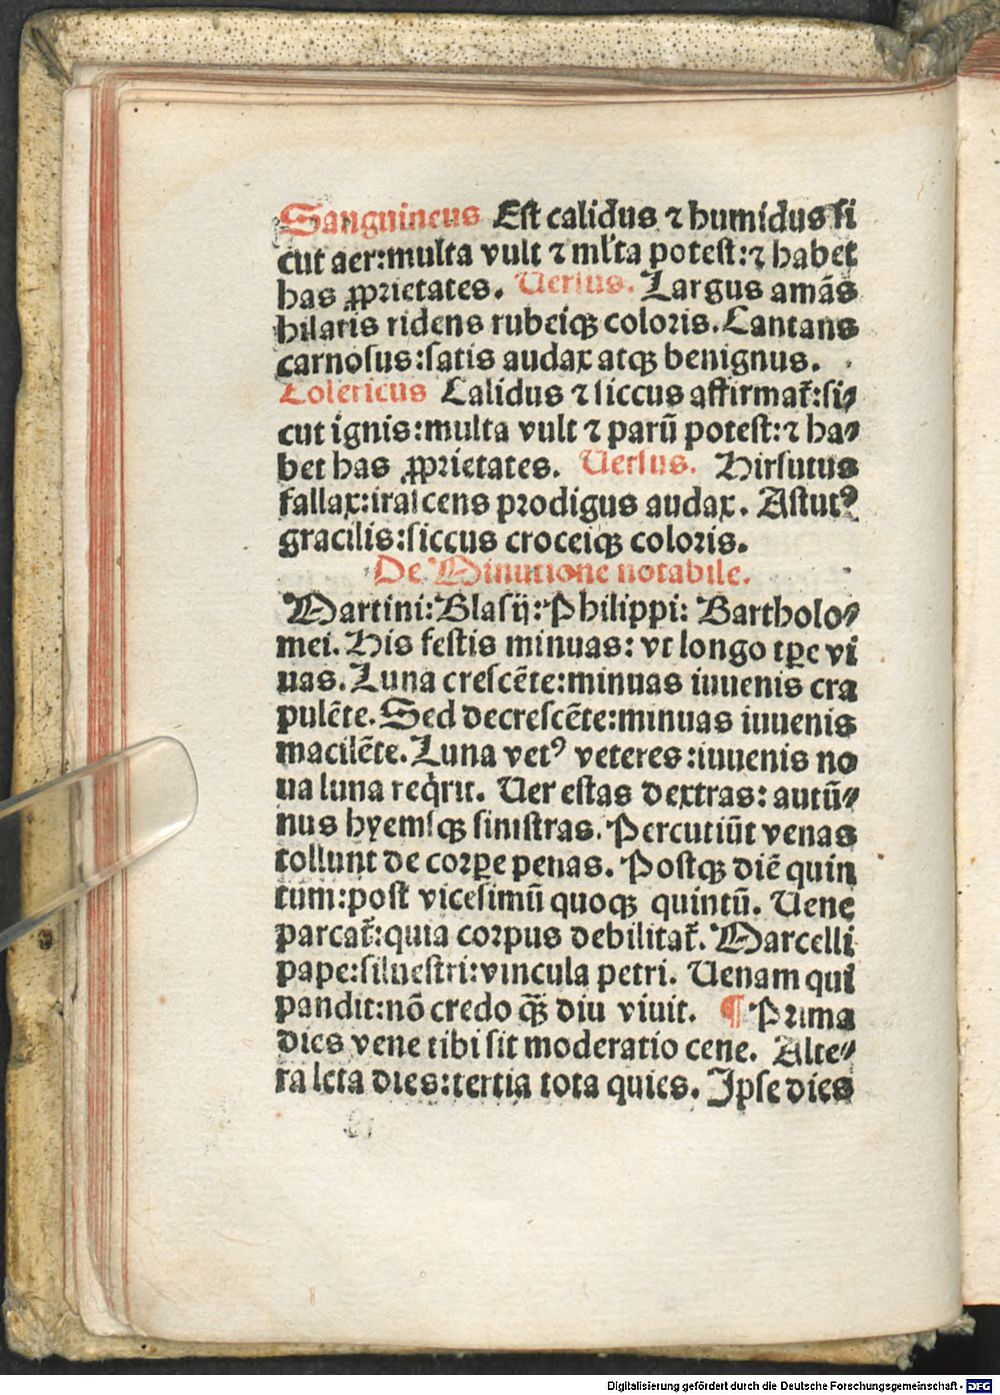 Sanguineus Est calidus ⁊ humidus si
cut aer:multa vult ⁊ ml'ta potest:⁊ habet
has ꝓprietates. Versus. Largus amās
hilaris ridens rubeiqꝫ coloris. Cantans
carnosus:satis audax atqꝫ benignus.
Colericus Calidus ⁊ siccus affirmat̄:si⸗
cut ignis:multa vult ⁊ parū potest:⁊ ha⸗
bet has ꝓprietates. Versus. Hirsutus
fallax:irascens prodigus audax. Astutꝰ
gracilis:siccus croceiqꝫ coloris.
De Minutione notabile.
Martini:Blasij:Philippi: Bartholo⸗
mei. His festis minuas: vt longo tꝑe vi
uas. Luna crescēte:minuas iuuenis cra
pulēte. Sed decrescēte:minuas iuuenis
macilēte. Luna vetꝰ veteres:iuuenis no
ua luna reqͥrit. Ver estas dextras: autū⸗
nus hyemsqꝫ sinistras. Percutiūt venas
tollunt de corꝑe penas. Postqꝫ diē quin
tum:post vicesimū quoqꝫ quintū. Vene
parcat̄:quia corpus debilitat̄. Marcelli
pape:siluestri:vincula petri. Venam qui
pandit:nō credo qꝫ̄ diu viuit. ¶ Prima
dies vene tibi sit moderatio cene. Alte⸗
ra leta dies:tertia tota quies. Ipse dies
Digitalisierung gefördert durch die Deutsche Forschungsgemeinschaft - DFG